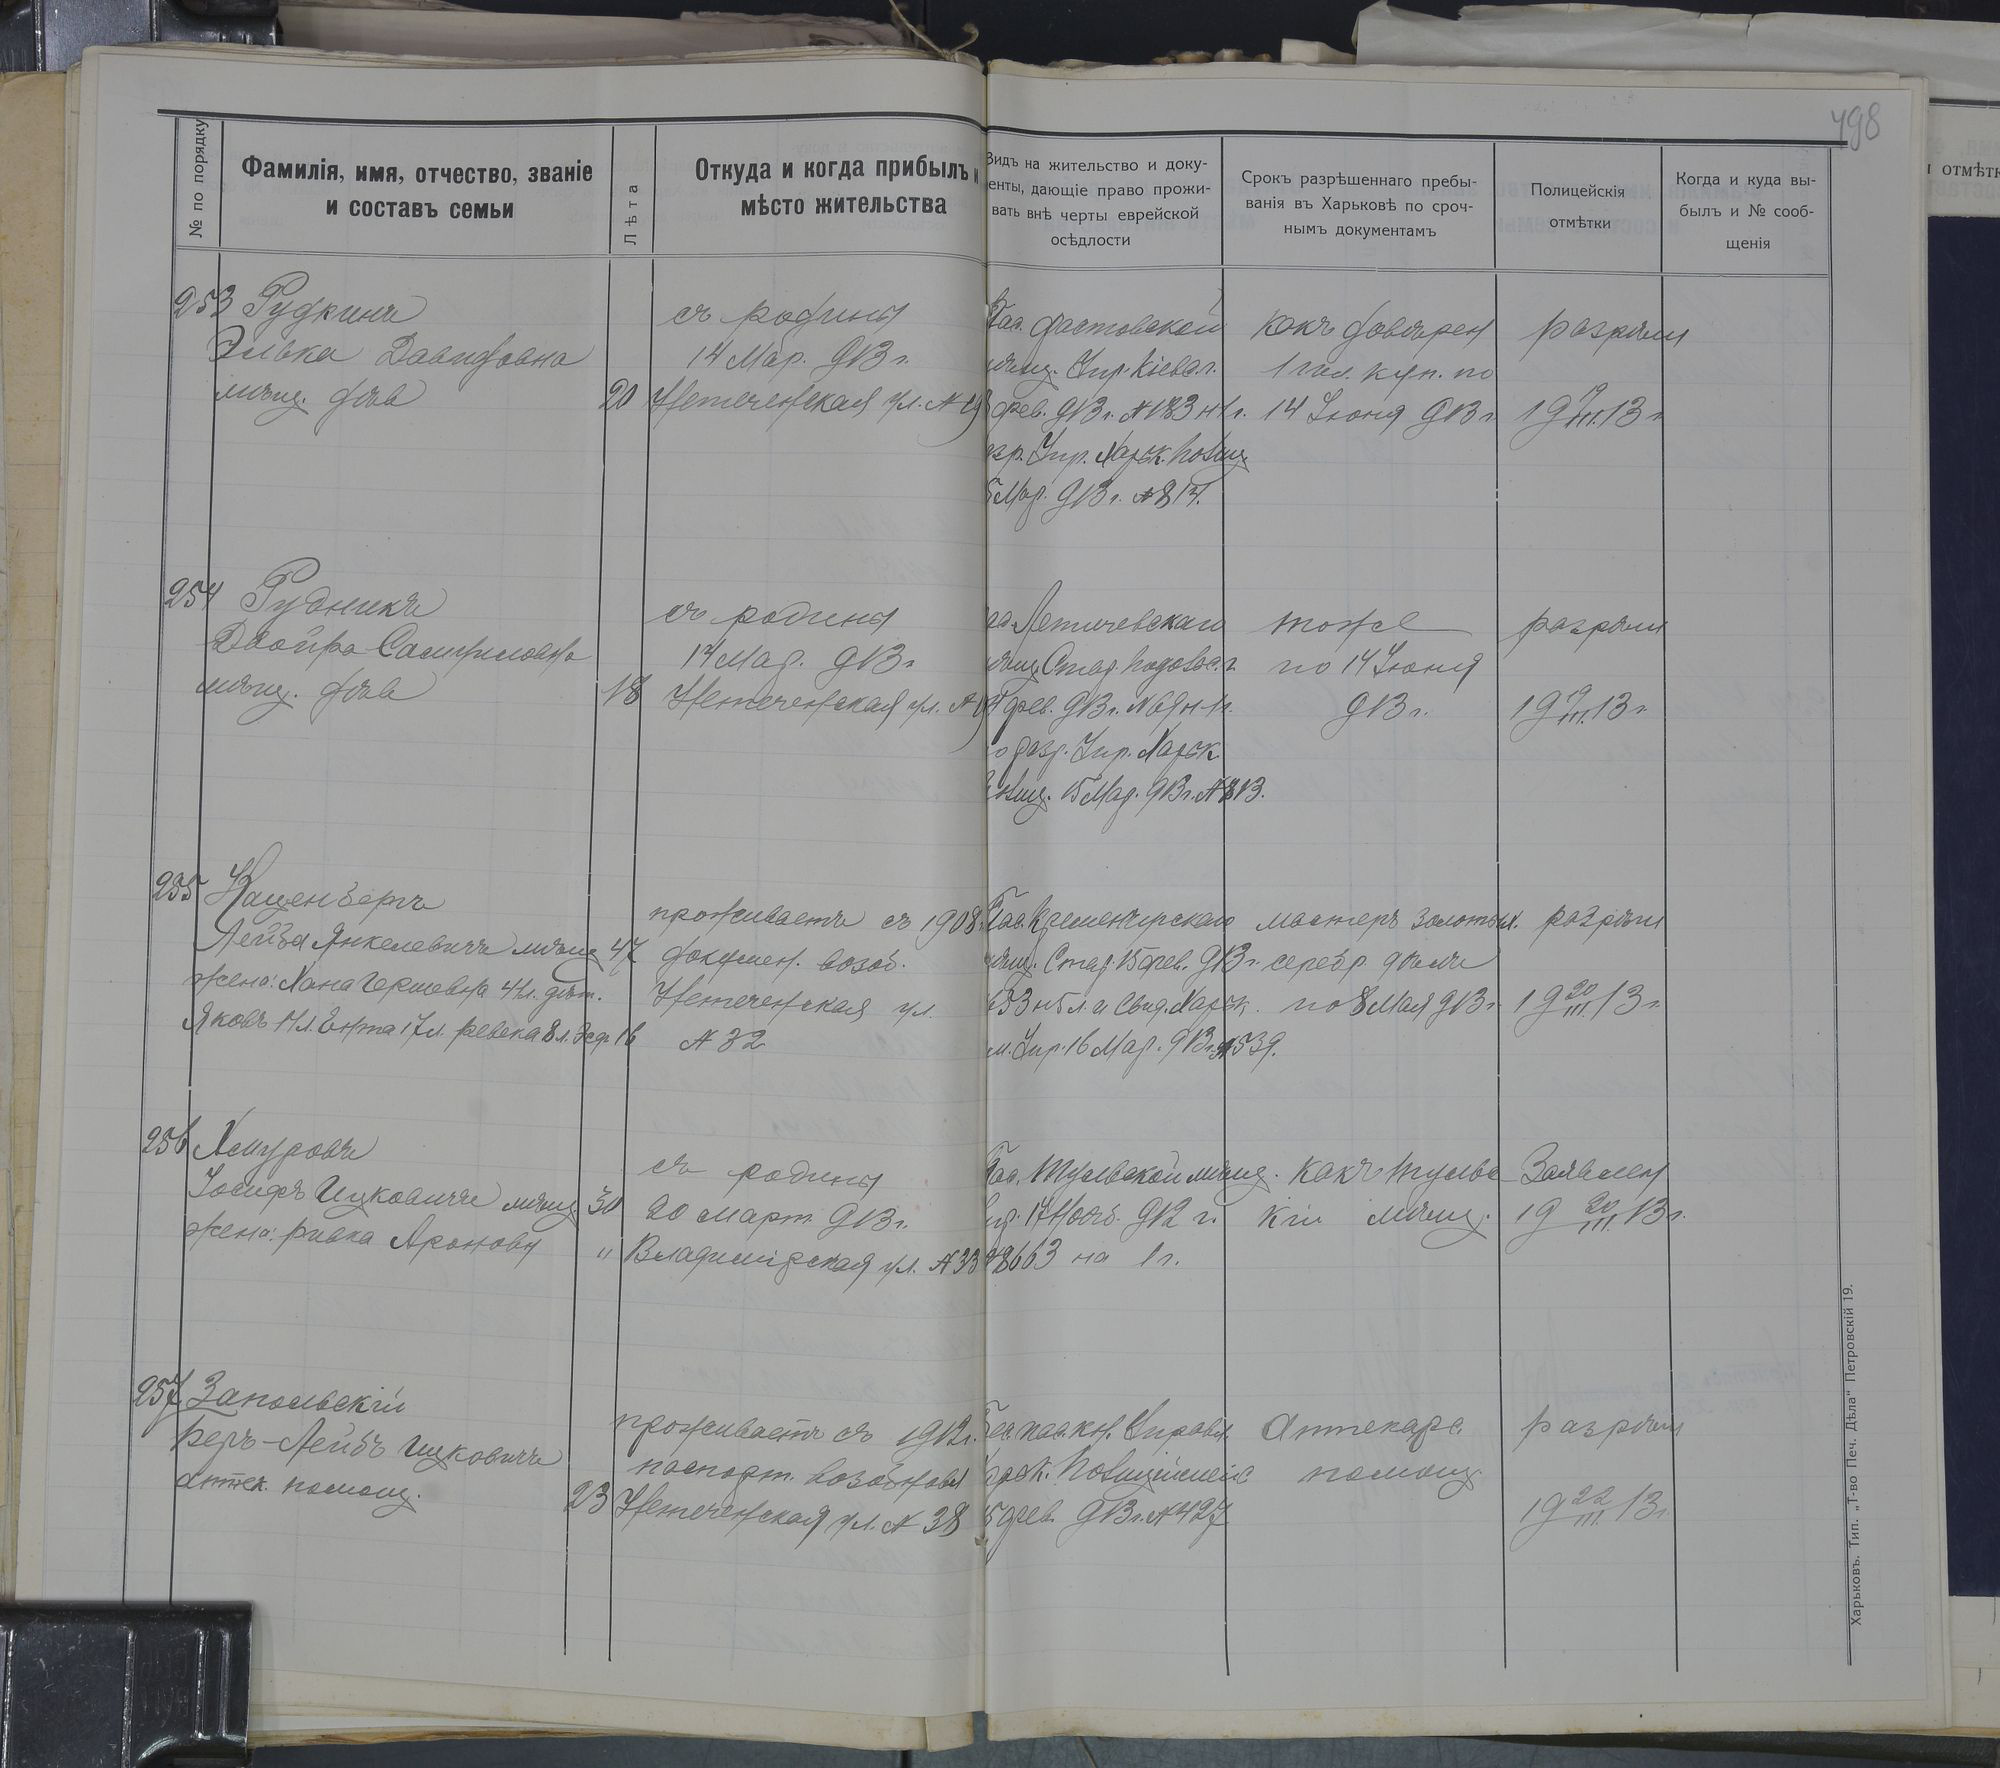 498
№ по порядку
Фамилія, имя, отчество, званіе
и составъ семьи
Лѣта
Откуда и когда прибылъ и
мѣсто жительства
Видъ на жительство и доку-
енты, дающіе право прожи-
вать внѣ черты еврейской
осѣдлости
Срокъ разрѣшеннаго пребы-
ванія въ Харьковѣ по сроч-
нымъ документамъ
Полицейскія
отмѣтки
Когда и куда вы-
былъ и № сооб-
щенія
253 Рудкинъ
Элька Давидовна
мѣщ. дѣв 20
съ родины
14 Мар. 913 г.
Нетеченская ул. №
Пас. Фастовской
мѣщ. Упр. Кіевс. г.
фев. 913 г. № 183 н 1 г.
зр. Упр. Харьк. Полиц.
15 Мар. 913 г. № 814.
какъ довѣрен
1 гил. куп. по
14 Іюня 913 г.
разрѣш
19 19/III 13 г.
254 Рудникъ
Двойра
мѣщ. дѣв 18
съ родины
14 Мар. 913 г.
Нетеченская ул. №
Летичевскаго
мѣщ. Стар. Подольс. г.
фев. 913 г. № 69 н 1 г.
разр. Упр. Харьк
Полиц. 15 Мар. 913 г. № 813.
тоже
по 14 Іюня
913 г.
разрѣш
19 19/III 13 г.
255 Каценбергъ
Лейба Янкелевичъ мѣщ 47
жена: Хана Гершевна 41 л. дѣт.
Яковъ 11 л. Гента 17 л. Ревека 8 л. Эсф 16
проживаетъ съ 1908
докумен. возоб.
Нетеченская ул.
№ 32
Пас. Кременчугскаго
мѣщ. Стар 15 фев. 913 г.
253 н 5 л. и Свид. Харьк.
м. Упр. 16 Мар. 913 г. № 539.
мастеръ золотых.
серебр. дѣлъ
по 8 Мая 913 г.
разрѣш
19 20/III 13 г.
256 Хмуровъ
Іосифъ Ицковичъ мѣщ. 30
жена: Ривка Аронова "
съ родины
20 март. 913 г.
Владимірская ул. № 33
Пас. Тульской мѣщ.
17 Нояб. 912 г.
№ 8663 на 1 г.
какъ тульс
кій мѣщ.
Заявлен
19 20/III 13 г.
257 Запольскій
Беръ-Лейбъ Ицковичъ
аптек. помощ. 23
проживаетъ съ 1912 г.
паспорт. возобновл
Нетеченская ул. № 38
Без. пас. кн. Управл.
Харьк. Полицеймейс
15 фев. 913 г. № 427
Аптекарс.
помощ.
разрѣш
19 22/III 13 г.
Харьковъ. Тип. „Т-во Печ. Дѣла“ Петровскій 19.